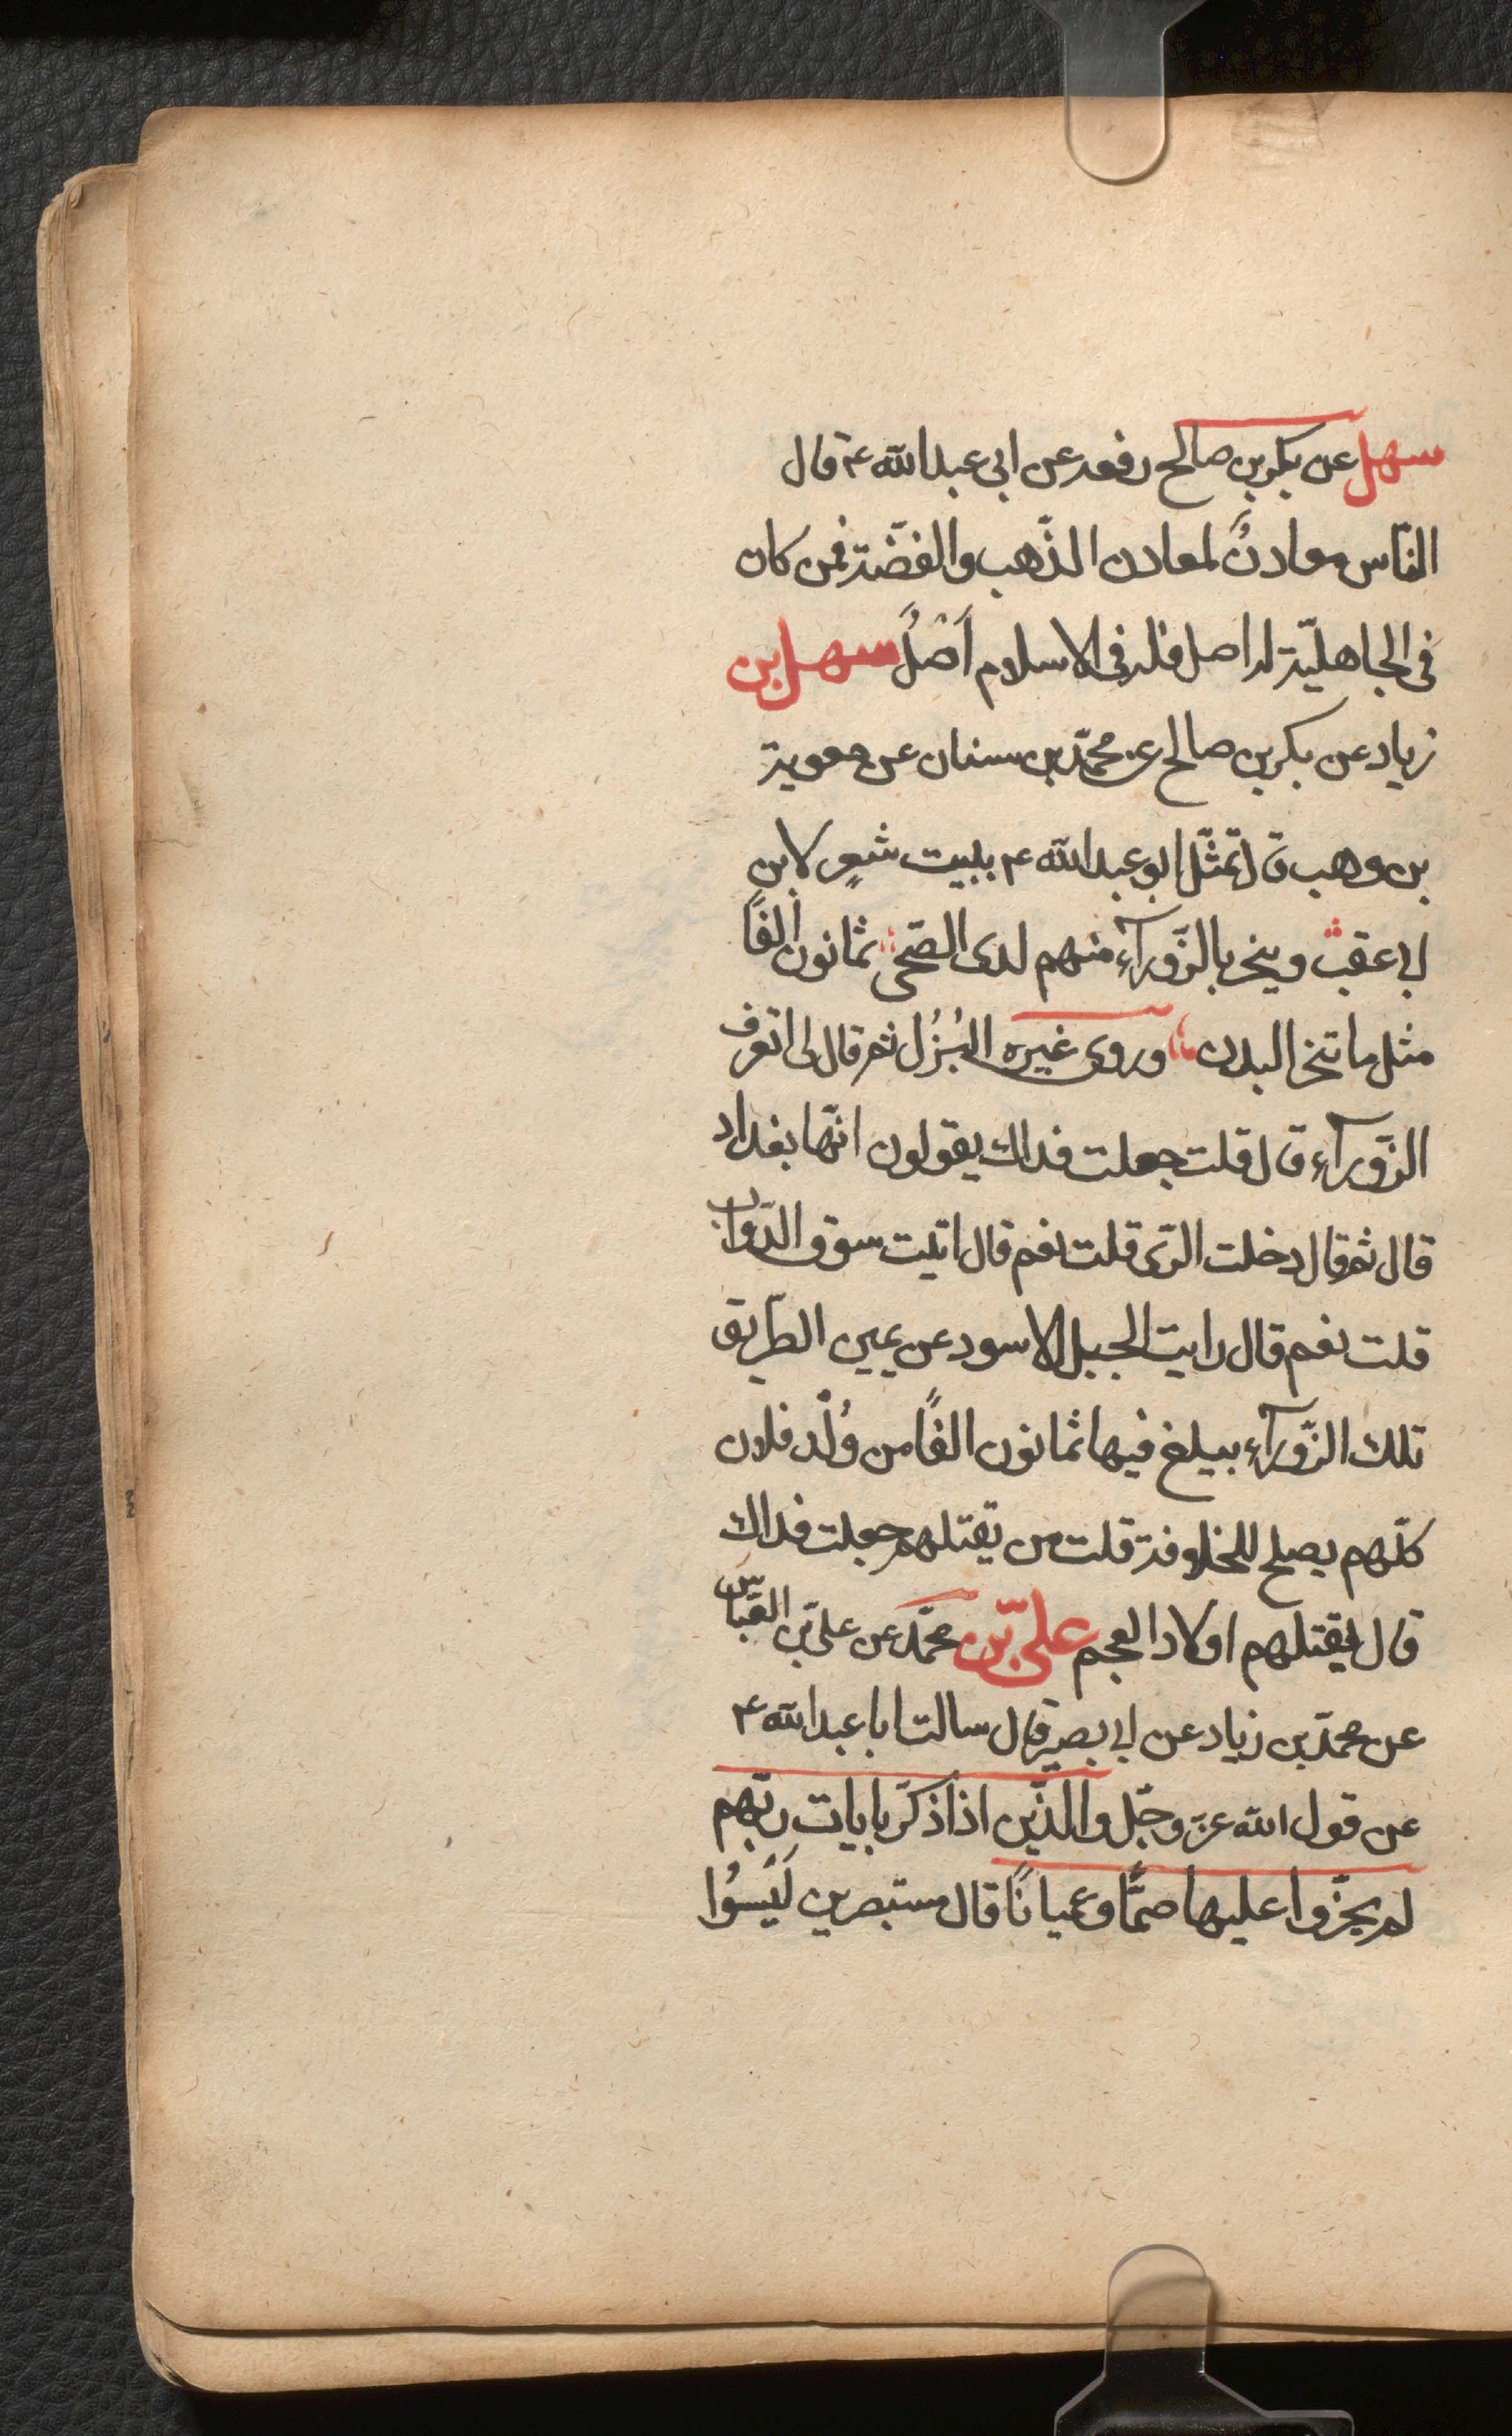 سهل عن بكر بن صالح رفعه عن ابى عبد الله ع قال
النّاس معادنٌ لمعادن الذّهب والفضّة فمن كان
فى الجاهليّة له اصل فله فى الاسلام اَصْلٌ سهل بن
زياد عن بكر بن صالح عن محمّد بن سنان عن معوية
بن وهب قال تمثّل ابو عبد الله ع ببيت شعرٍ لابن
ابى عقب وينحر بالزّورآء منهم لدى الضّحى ثمانون الفًا
مثل ما تنحر البدن وروى غيره البُزُل ثم قال لى اتعرف
الزّورآء قال قلت جعلت فداك يقولون انّها بغداد
قال ثم قال دخلت الرّى قلت نعم قال اتيت سوق الدّوابّ
قلت نعم قال رايت الجبل الاسود عن يمين الطّريق
تلك الزّورآء يبلغ فيها ثمانون الفًا من وُلْد فلان
كلّهم يصلح للخلافة قلت من يقتلهم جعلت فداك
قال يقتلهم اولاد العجم علىّ بن محمّد عن علىّ بن العبّاس
عن محمّد بن زياد عن ابى بصير قال سالت ابا عبد الله ع
عن قول الله عزّ وجلّ والّذين اذا ذكّر بايات ربّهم
لم يخرّوا عليها صمًّا وعميانًا قال مستبصرين لَيْسُوا